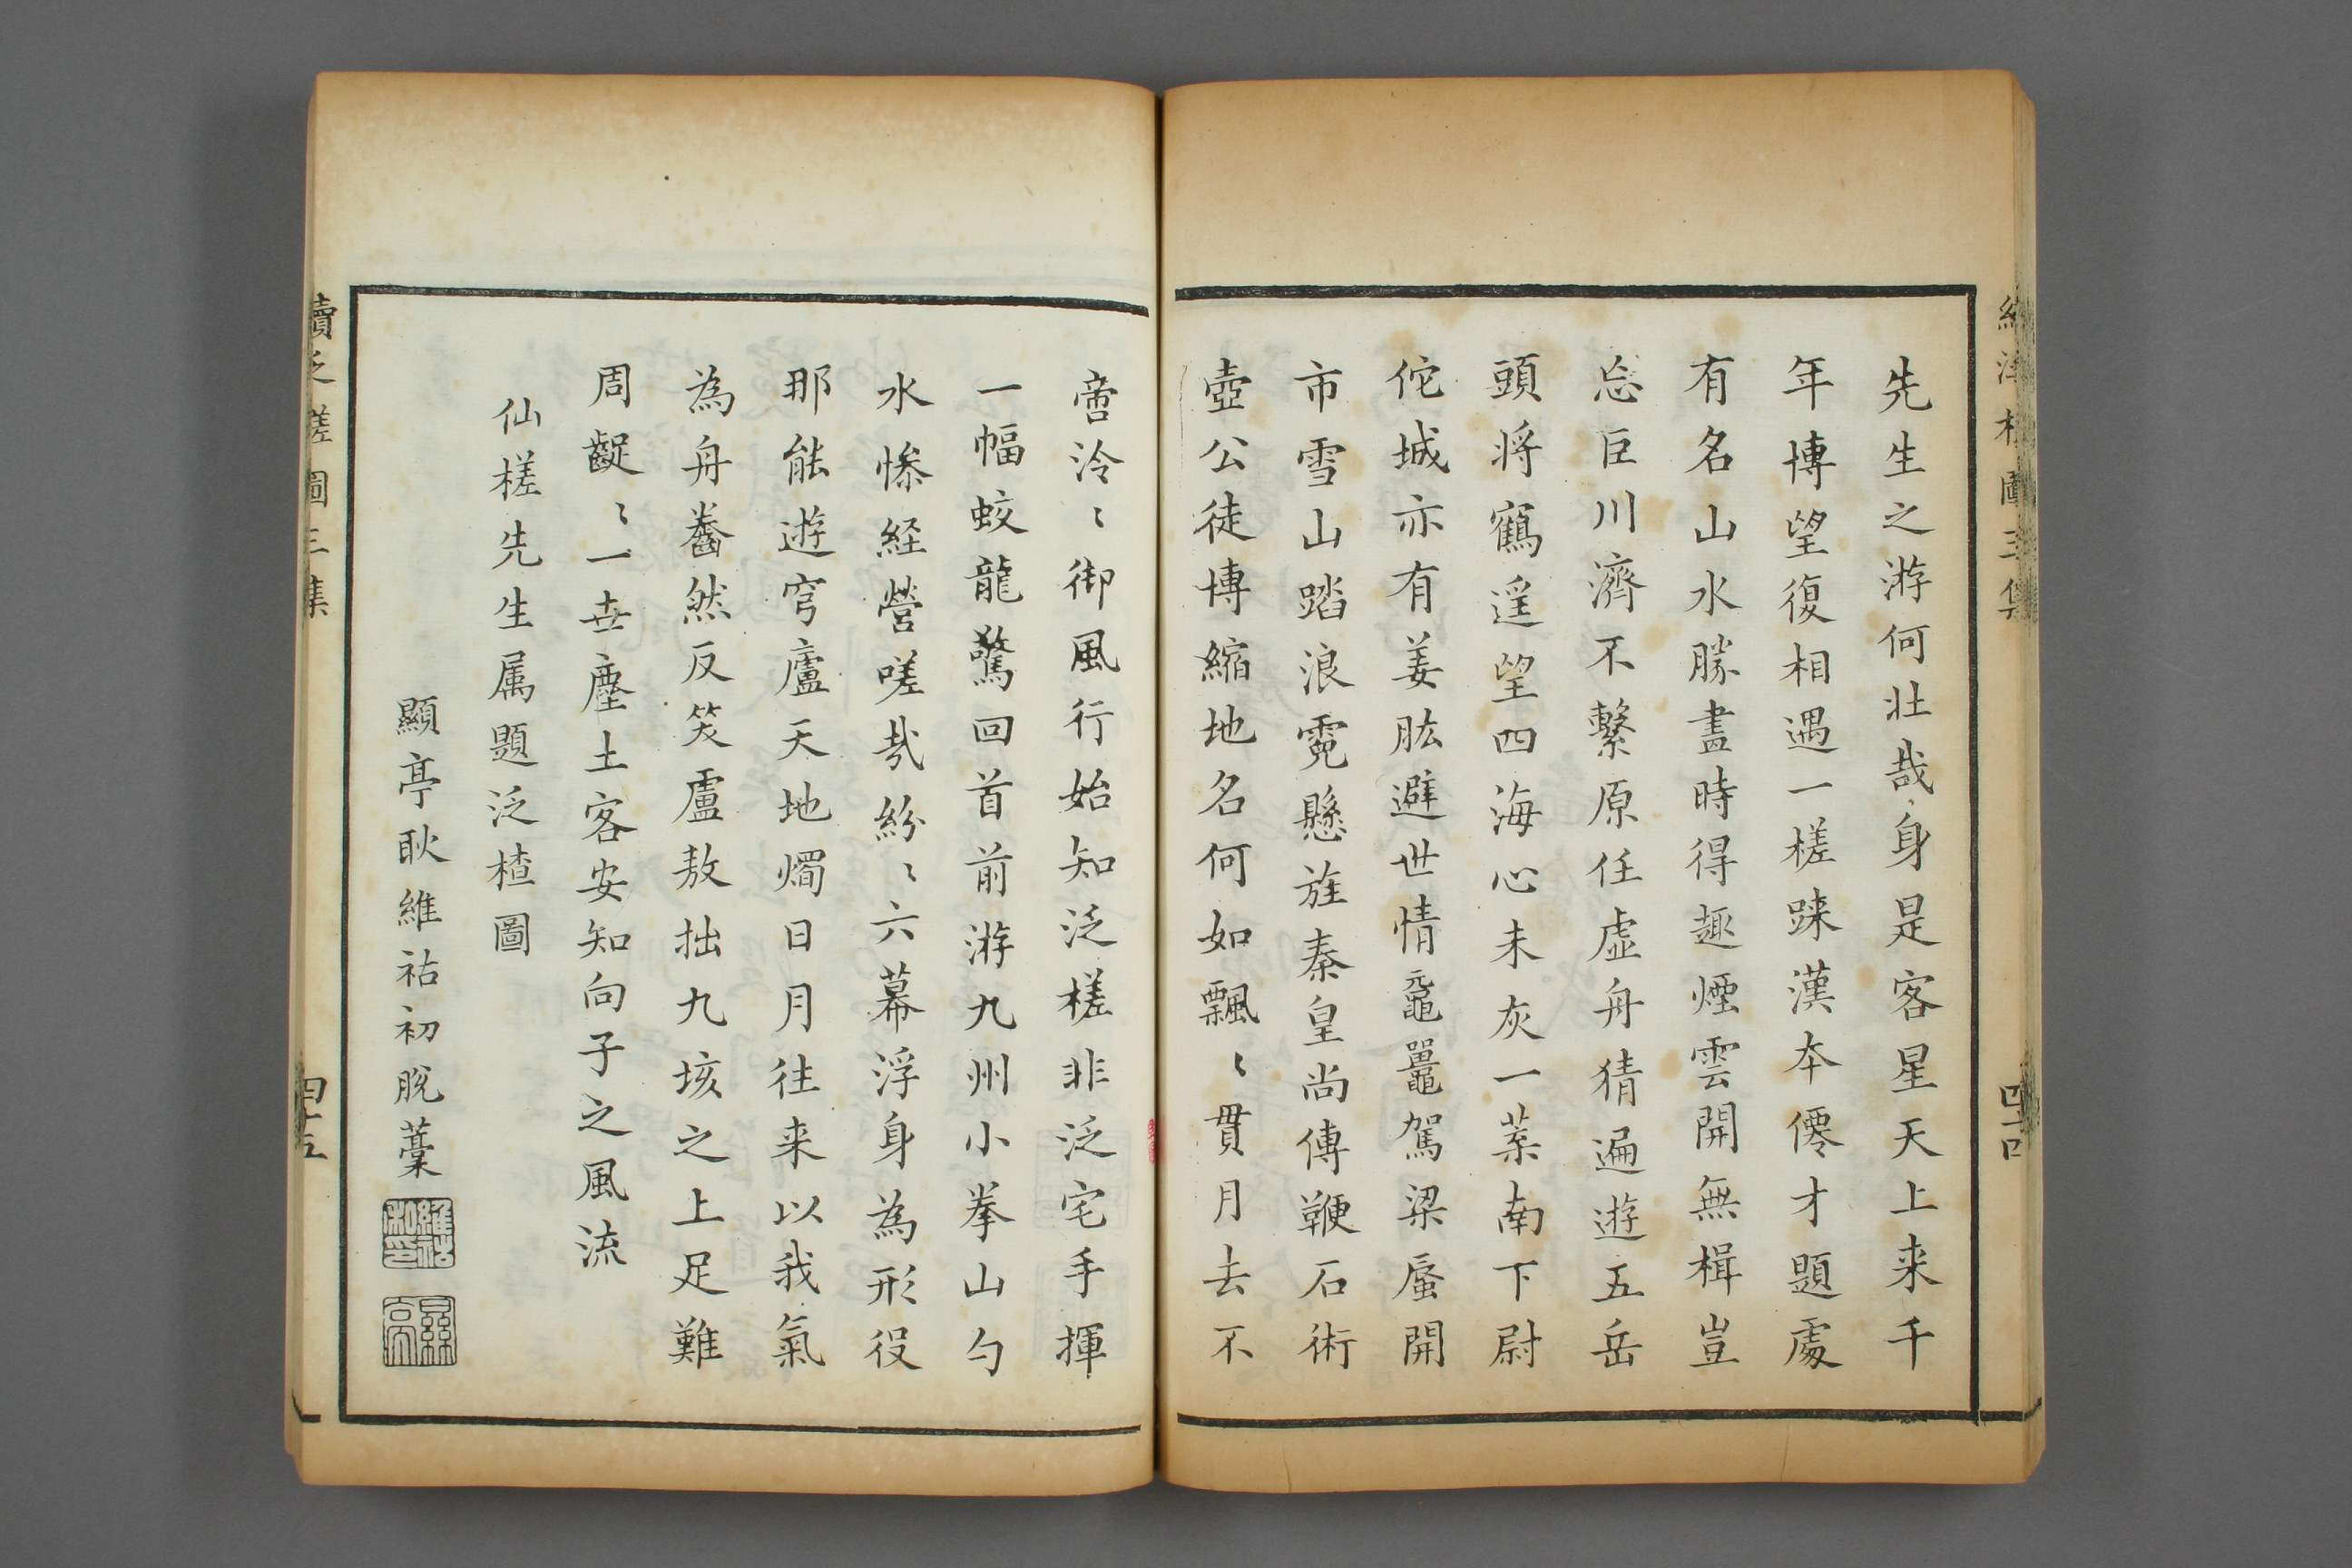 先生之游何壯哉身是客星天上来千
年博望復相遇一槎踈漢本僊才題處
有名山水勝畫時得趣煙雲開無楫豈
忘巨川濟不繫原任虛舟猜遍遊五岳
頭將鶴遥望四海心未灰一葉南下尉
佗城亦有姜肱避世情黿鼉駕梁蜃開
市雪山踏浪霓懸旌秦皇尚傳鞭石術
壺公徒博縮地名何如飄〻貫月去不
啻泠〻御風行始知泛槎非泛宅手揮
一幅蛟龍驚回首前游九州小拳山勺
水慘経營嗟哉紛〻六幕浮身為形役
那能遊穹廬天地燭日月往来以我氣
為舟齤然反笑盧敖拙九垓之上足難
周齪〻一世塵土客安知向子之風流
仙槎先生属題泛楂圖
顯亭耿維祜初脫藁
維祜私印
顯亭
續泛槎圖三集
四十四
續泛槎圖三集
四十五